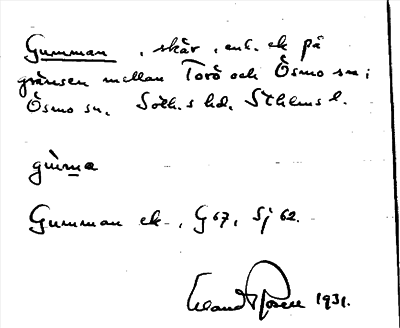 Gumman, skär, enl. ek på
gränsen mellan Torö och Ösmo sn;
Ösmo sn, Söth.s hd. Sthlms l.
gùma
Gumman ek-, G 67, Sj 62.
Rosell 1931.